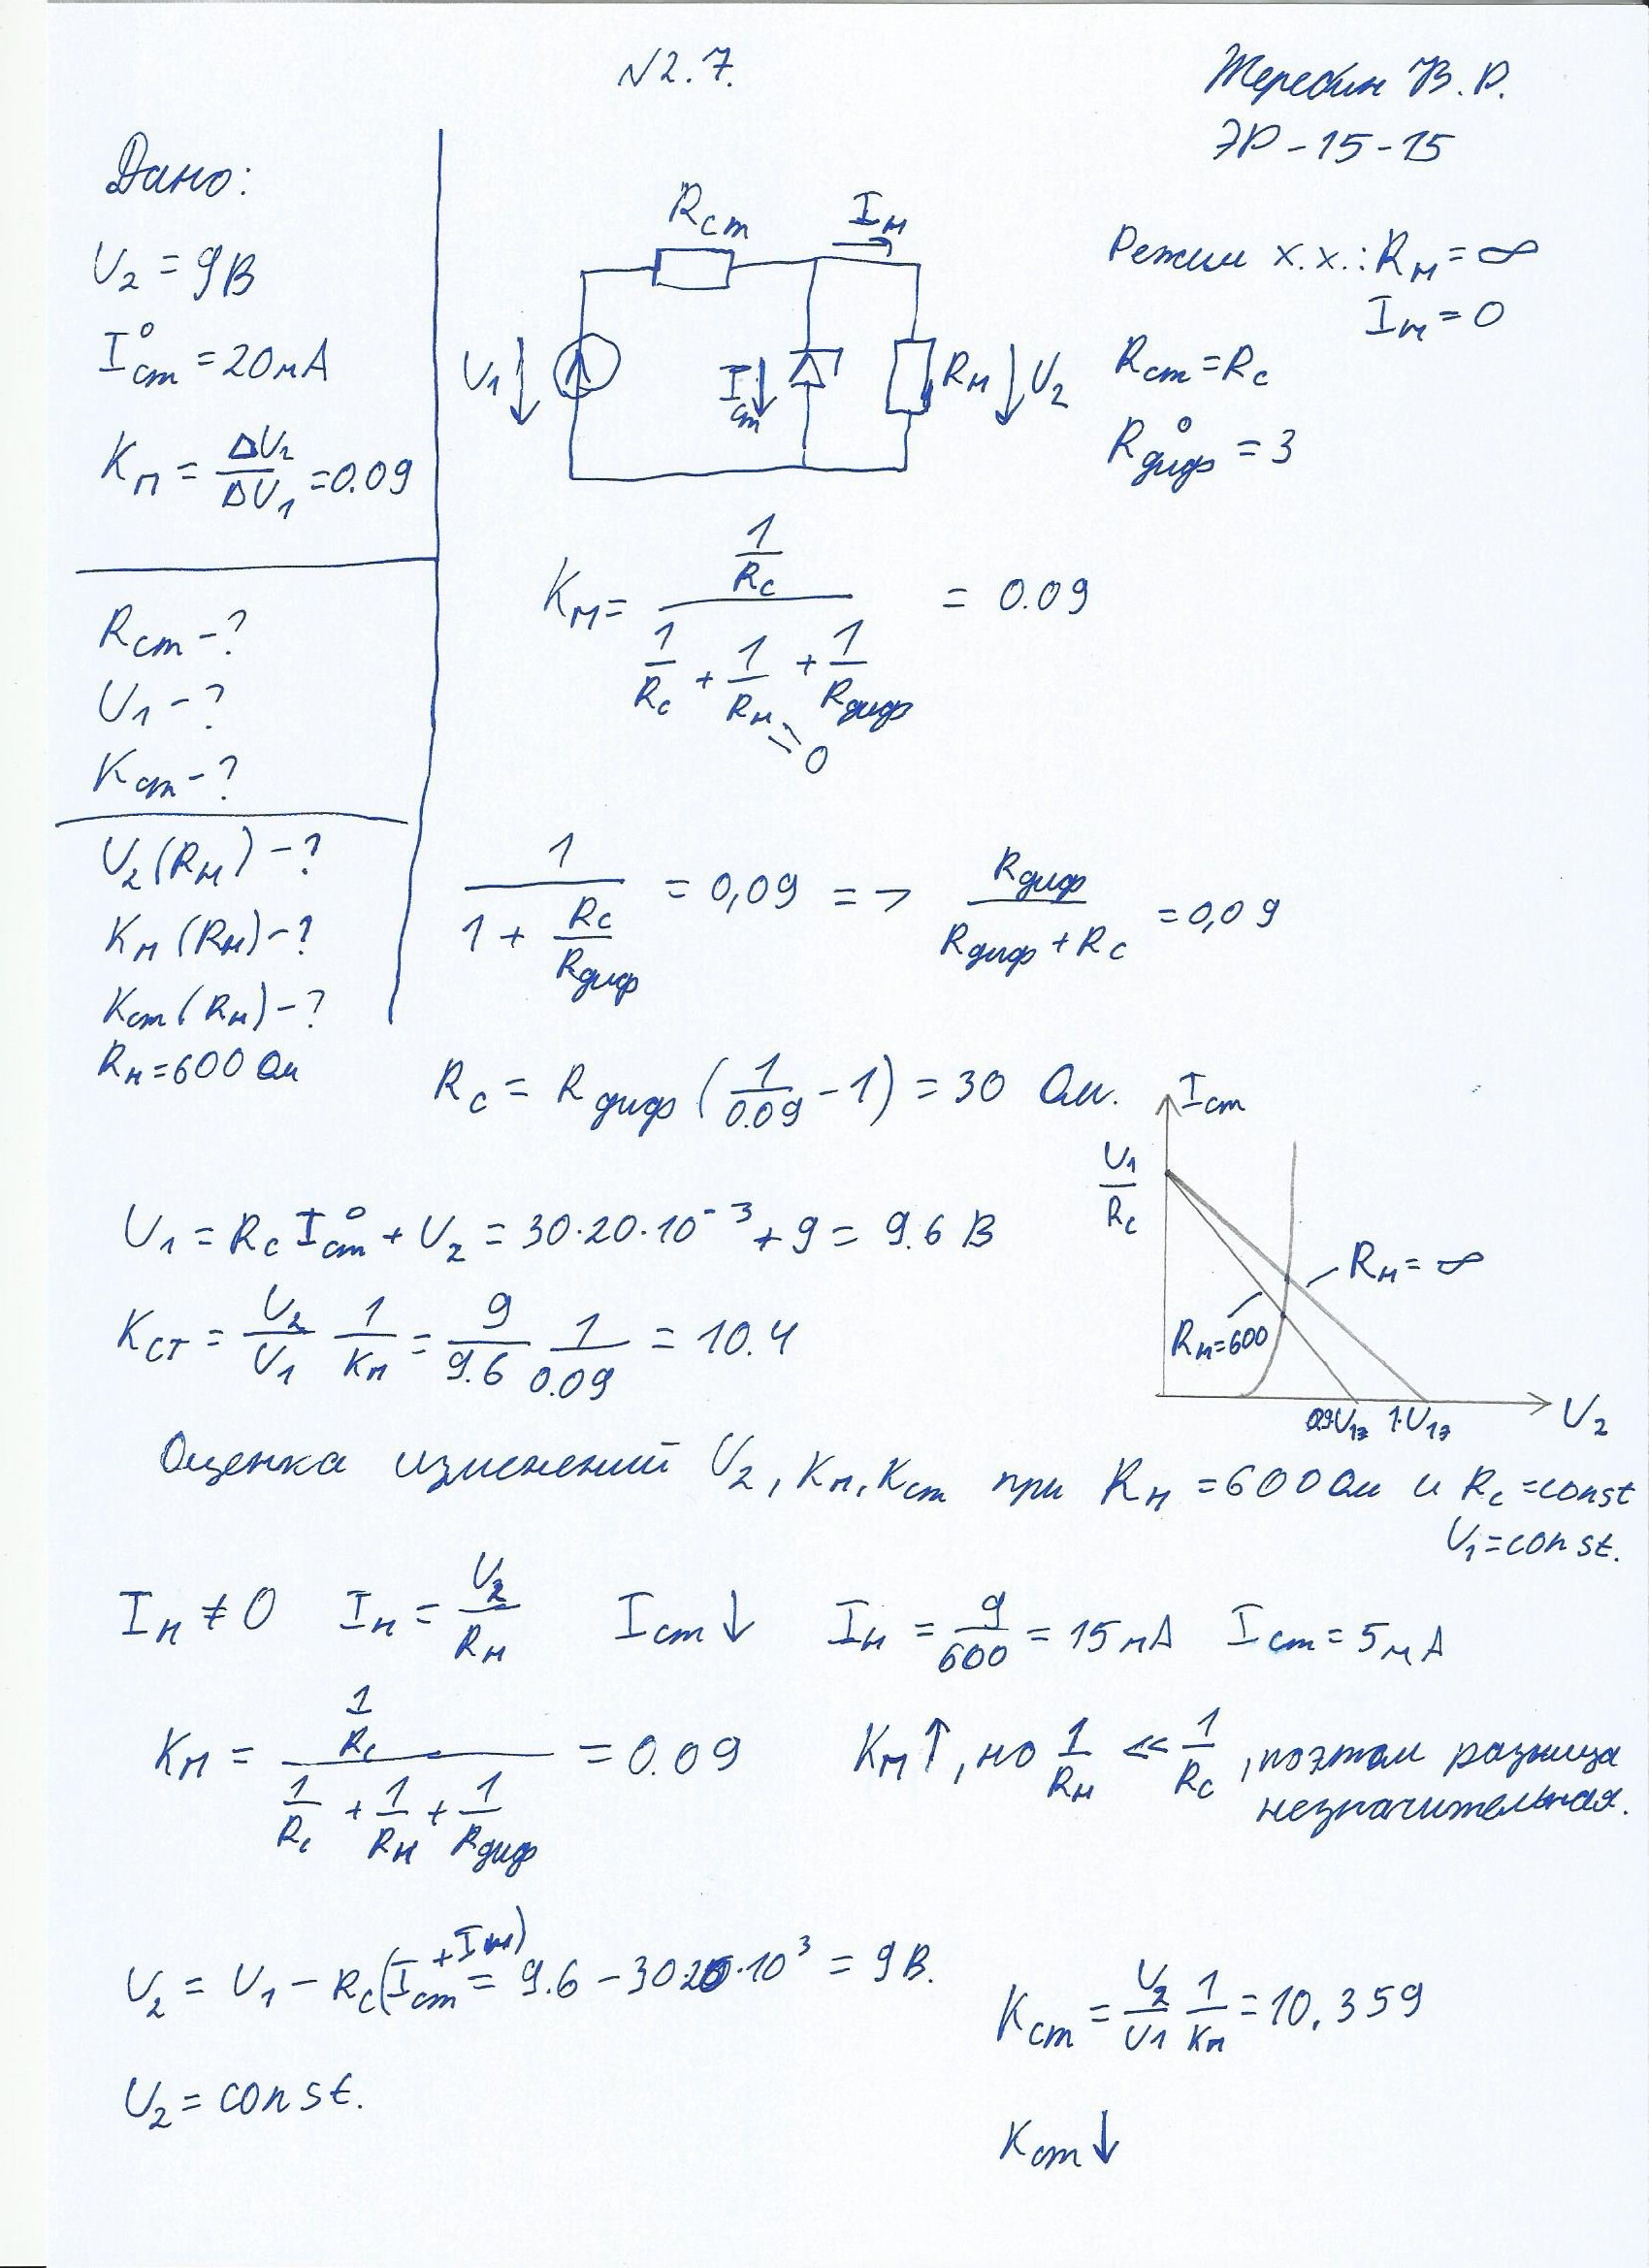 N2.7.
Жеребин В.Р.
ЭР-15-15
Дано:
U₂ = 9В
I°ст = 20мА
Kп = ΔU₂/ΔU₁ = 0.09
Rст - ?
U₁ - ?
Kст - ?
U₂(Rн) - ?
Kп(Rн) - ?
Kст(Rн) - ?
Rн = 600 Ом
Rст
Iн
U₁
Iст
Rн
U₂
Режим х.х.: Rн = ∞
Iн = 0
Rст = Rс
R°диф = 3
Kп = (1/Rс)/(1/Rс + 1/Rн + 1/Rдиф) = 0.09
= 0
1/(1 + Rс/Rдиф) = 0,09 => Rдиф/(Rдиф + Rс) = 0,09
Rс = Rдиф (1/0.09 - 1) = 30 Ом.
U₁ = Rс I°ст + U₂ = 30·20·10⁻³ + 9 = 9.6 В
Kст = U₂/U₁ 1/Kп = 9/9.6 1/0.09 = 10.4
Iст
U₁/Rс
Rн = ∞
Rн = 600
0.9·U₁э 1·U₁э
U₂
Оценка изменений U₂, Kп, Kст при Rн = 600 Ом и Rс = const
U₁ = const.
Iн ≠ 0 Iн = U₂/Rн Iст ↓ Iн = 9/600 = 15 мА Iст = 5 мА
Kп = (1/Rс)/(1/Rс + 1/Rн + 1/Rдиф) = 0.09
Kп ↑, но 1/Rн << 1/Rс, поэтом разница
незначительная.
U₂ = U₁ - Rс(Iст + Iн) = 9.6 - 30·20·10³ = 9В.
Kст = U₂/U1 1/Kп = 10,359
U₂ = const.
Kст ↓